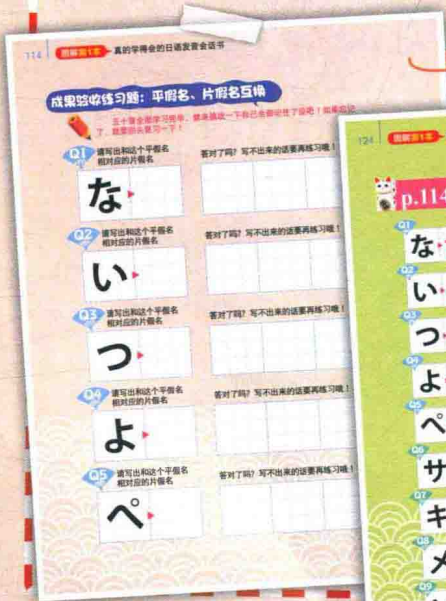 114 图解第1本 真的学得会的日语发音会话书
成果验收练习题：平假名、片假名互换
五十音全部学习完毕，
了，就要回头复习一下！
Q1 请写出和这个平假名
相对应的片假名
答对了吗？写不出来的话要再练习哦！
な
Q2 请写出和这个平假名
相对应的片假名
答对了吗？写不出来的话要再练习哦！
い
Q3 请写出和这个平假名
相对应的片假名
答对了吗？写不出来的话要再练习哦！
つ
Q4 请写出和这个平假名
相对应的片假名
答对了吗？写不出来的话要再练习哦！
よ
Q5 请写出和这个平假名
相对应的片假名
答对了吗？写不出来的话要再练习哦！
ぺ
124 图解第1本
p.114
Q1
な
Q2
い
Q3
つ
Q4
よ
Q5
ペ
Q6
サ
Q7
キ
Q8
メ
Q9